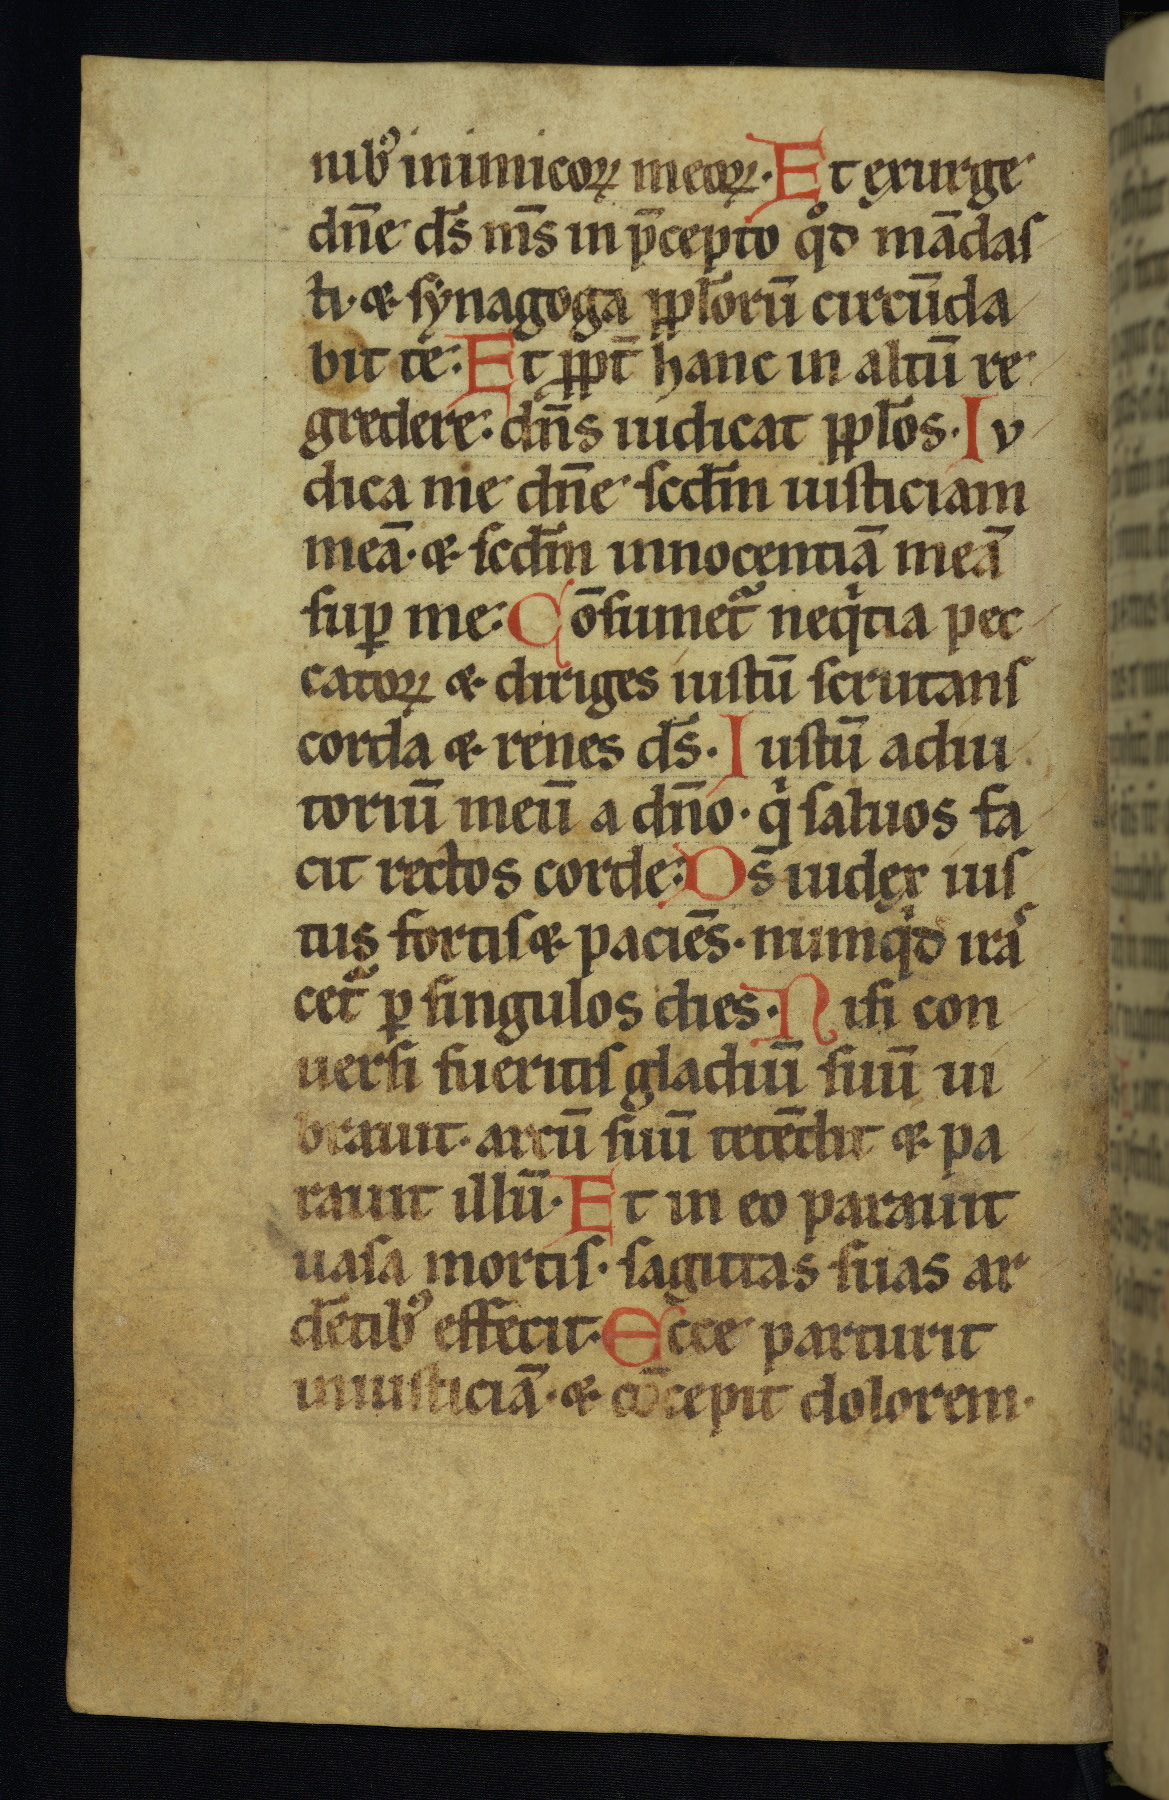 nibꝰ inimicoꝝ meoꝝ· Et exurge
dn̄e ds̄ ms̄ in p̄cepto qͦd mādaſ
ti· ⁊ ſynagoga ppl̄orū circūda
bit te: Et ꝓpt̄ hanc in altū re
gredere: dn̄s iudicat ppl̄os· Iv
dica me dn̄e ſcd̄m iuſticiam
meā· ⁊ ſcd̄m innocentiā meā
ſuꝑ me: Cōſumet᷑ neqͥtia pec
catoꝝ ⁊ diriges iuſtū ſcrutanſ
corda ⁊ renes ds̄· Iuſtū adiu
toriū meū a dn̄o· qͥ ſaluos fa
cit rectos corde: Ds̄ iudex iuſ
tus fortiſ ⁊ paciēs· numqͥd iraſ
cet᷑ ꝑ ſingulos dies· Niſi con
uerſi fueritiſ gladiū ſuū ui
brauit· arcū ſuū tetēdit ⁊ pa
rauit illū· Et in eo parauit
uaſa mortiſ· ſagittas ſuas ar
dētibꝰ effecit· Ecce parturit
iniuſticiā· ⁊ cōcepit dolorem·